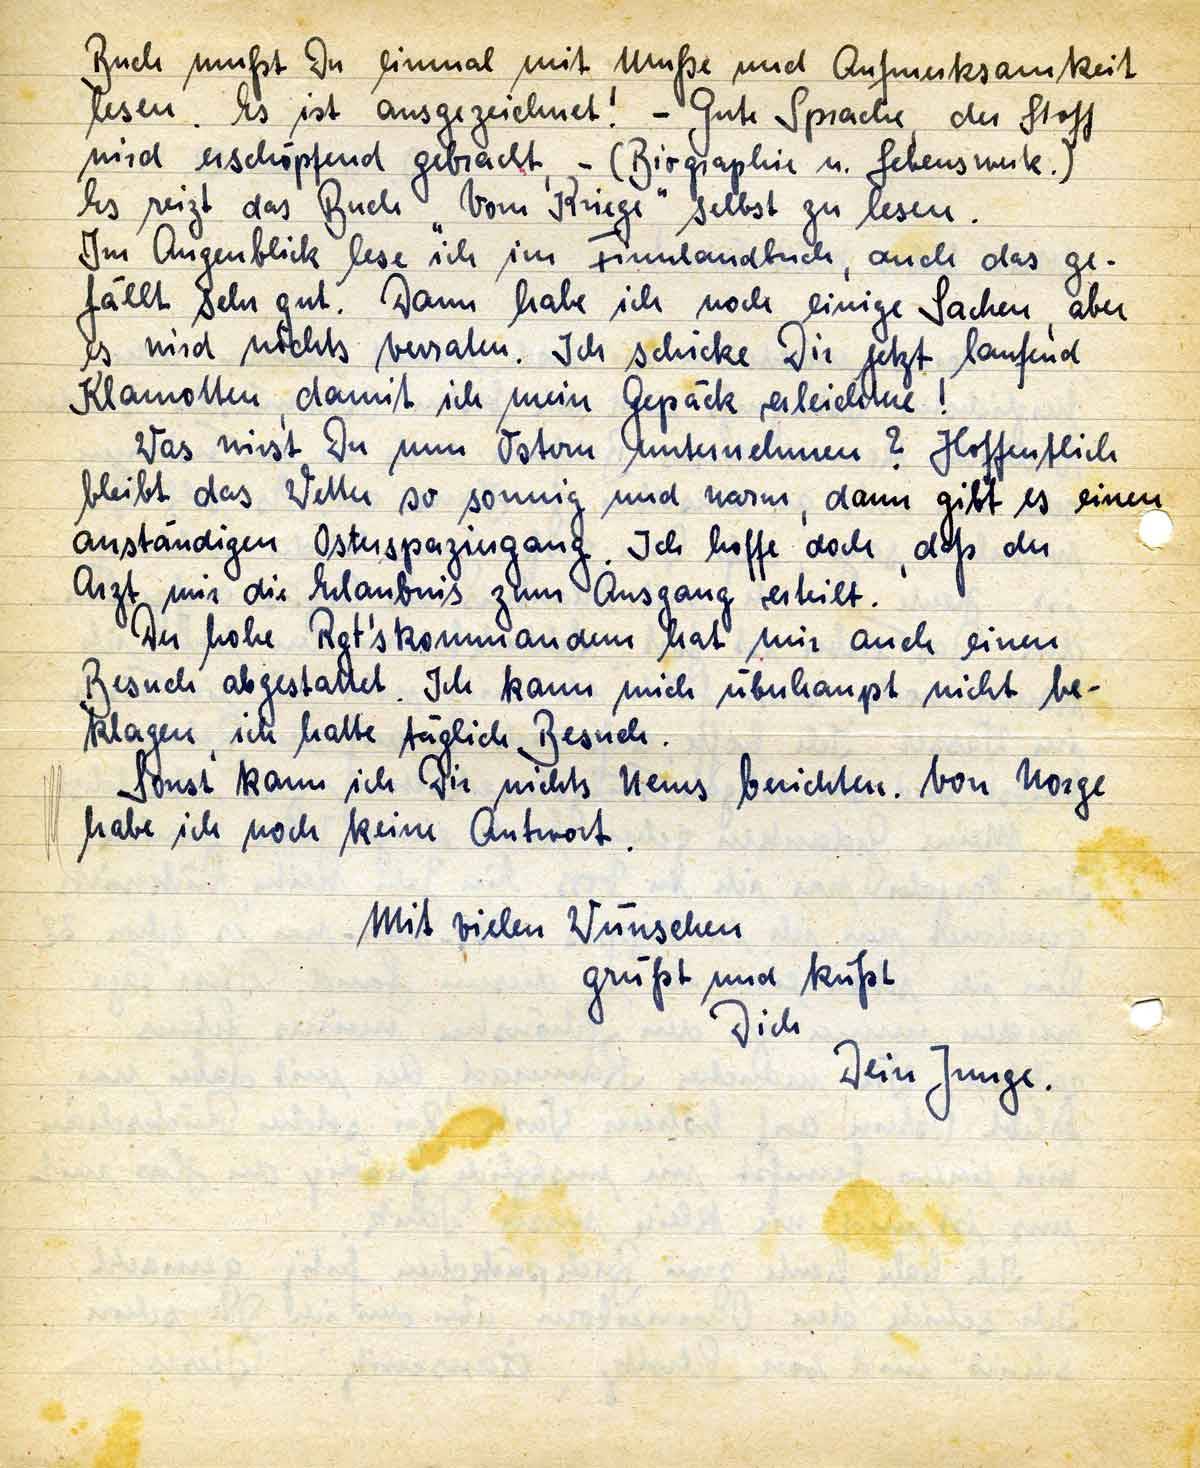 Buch mußt Du einmal mit Muße und Aufmerksamkeit
lesen. Es ist ausgezeichnet! - Gute Sprache, der Stoff
wird erschöpfend gebracht, - (Biographie u. Lebenswerk.)
Es reizt das Buch "Vom Kriege" selbst zu lesen.
Im Augenblick lese ich im Finnlandbuch, auch das ge-
fällt sehr gut. Dann habe ich noch einige Sachen, aber
es wird nichts verraten. Ich schicke Dir jetzt laufend
Klamotten, damit ich mein Gepäck erleichtere!
Was wirst Du nun Ostern unternehmen? Hoffentlich
bleibt das Wetter so sonnig und warm, dann gibt es einen
anständigen Osterspaziergang. Ich hoffe doch, daß der
Arzt mir die Erlaubnis zum Ausgang erteilt.
Der hohe Rgt'skommandeur hat mir auch einen
Besuch abgestattet. Ich kann mich überhaupt nicht be-
klagen, ich hatte täglich Besuch.
Sonst kann ich Dir nichts Neues berichten. Von Norge
habe ich noch keine Antwort.
Mit vielen Wünschen
grüßt und küßt
Dich
Dein Junge.